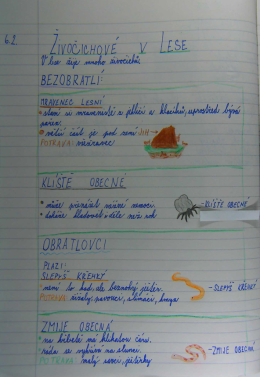 6.2.
ŽIVOČICHOVÉ V LESE
V lese žije mnoho živočichů
BEZOBRATLÍ:
MRAVENEC LESNÍ
staví si mraveniště z jehličí a klacíků, uprostřed bývá
pařez.
větší část je pod zemí !!! →
POTRAVA:
KLÍŠTĚ OBECNÉ
může přenášet vážné nemoci.
dokáže hladovět i déle než rok
- KLÍŠTĚ OBECNÉ
OBRATLOVCI
PLAZI:
SLEPÝŠ KŘEHKÝ
není to had, ale beznohý ještěr.
POTRAVA: žížaly, pavouci, slimáci, hmyz
- SLEPÝŠ KŘEHKÝ
ZMIJE OBECNÁ
na hřbetě má klikatou čáru.
ráda se vyhřívá na slunci.
POTRAVA: malý savci, ještěrky
- ZMIJE OBECNÁ